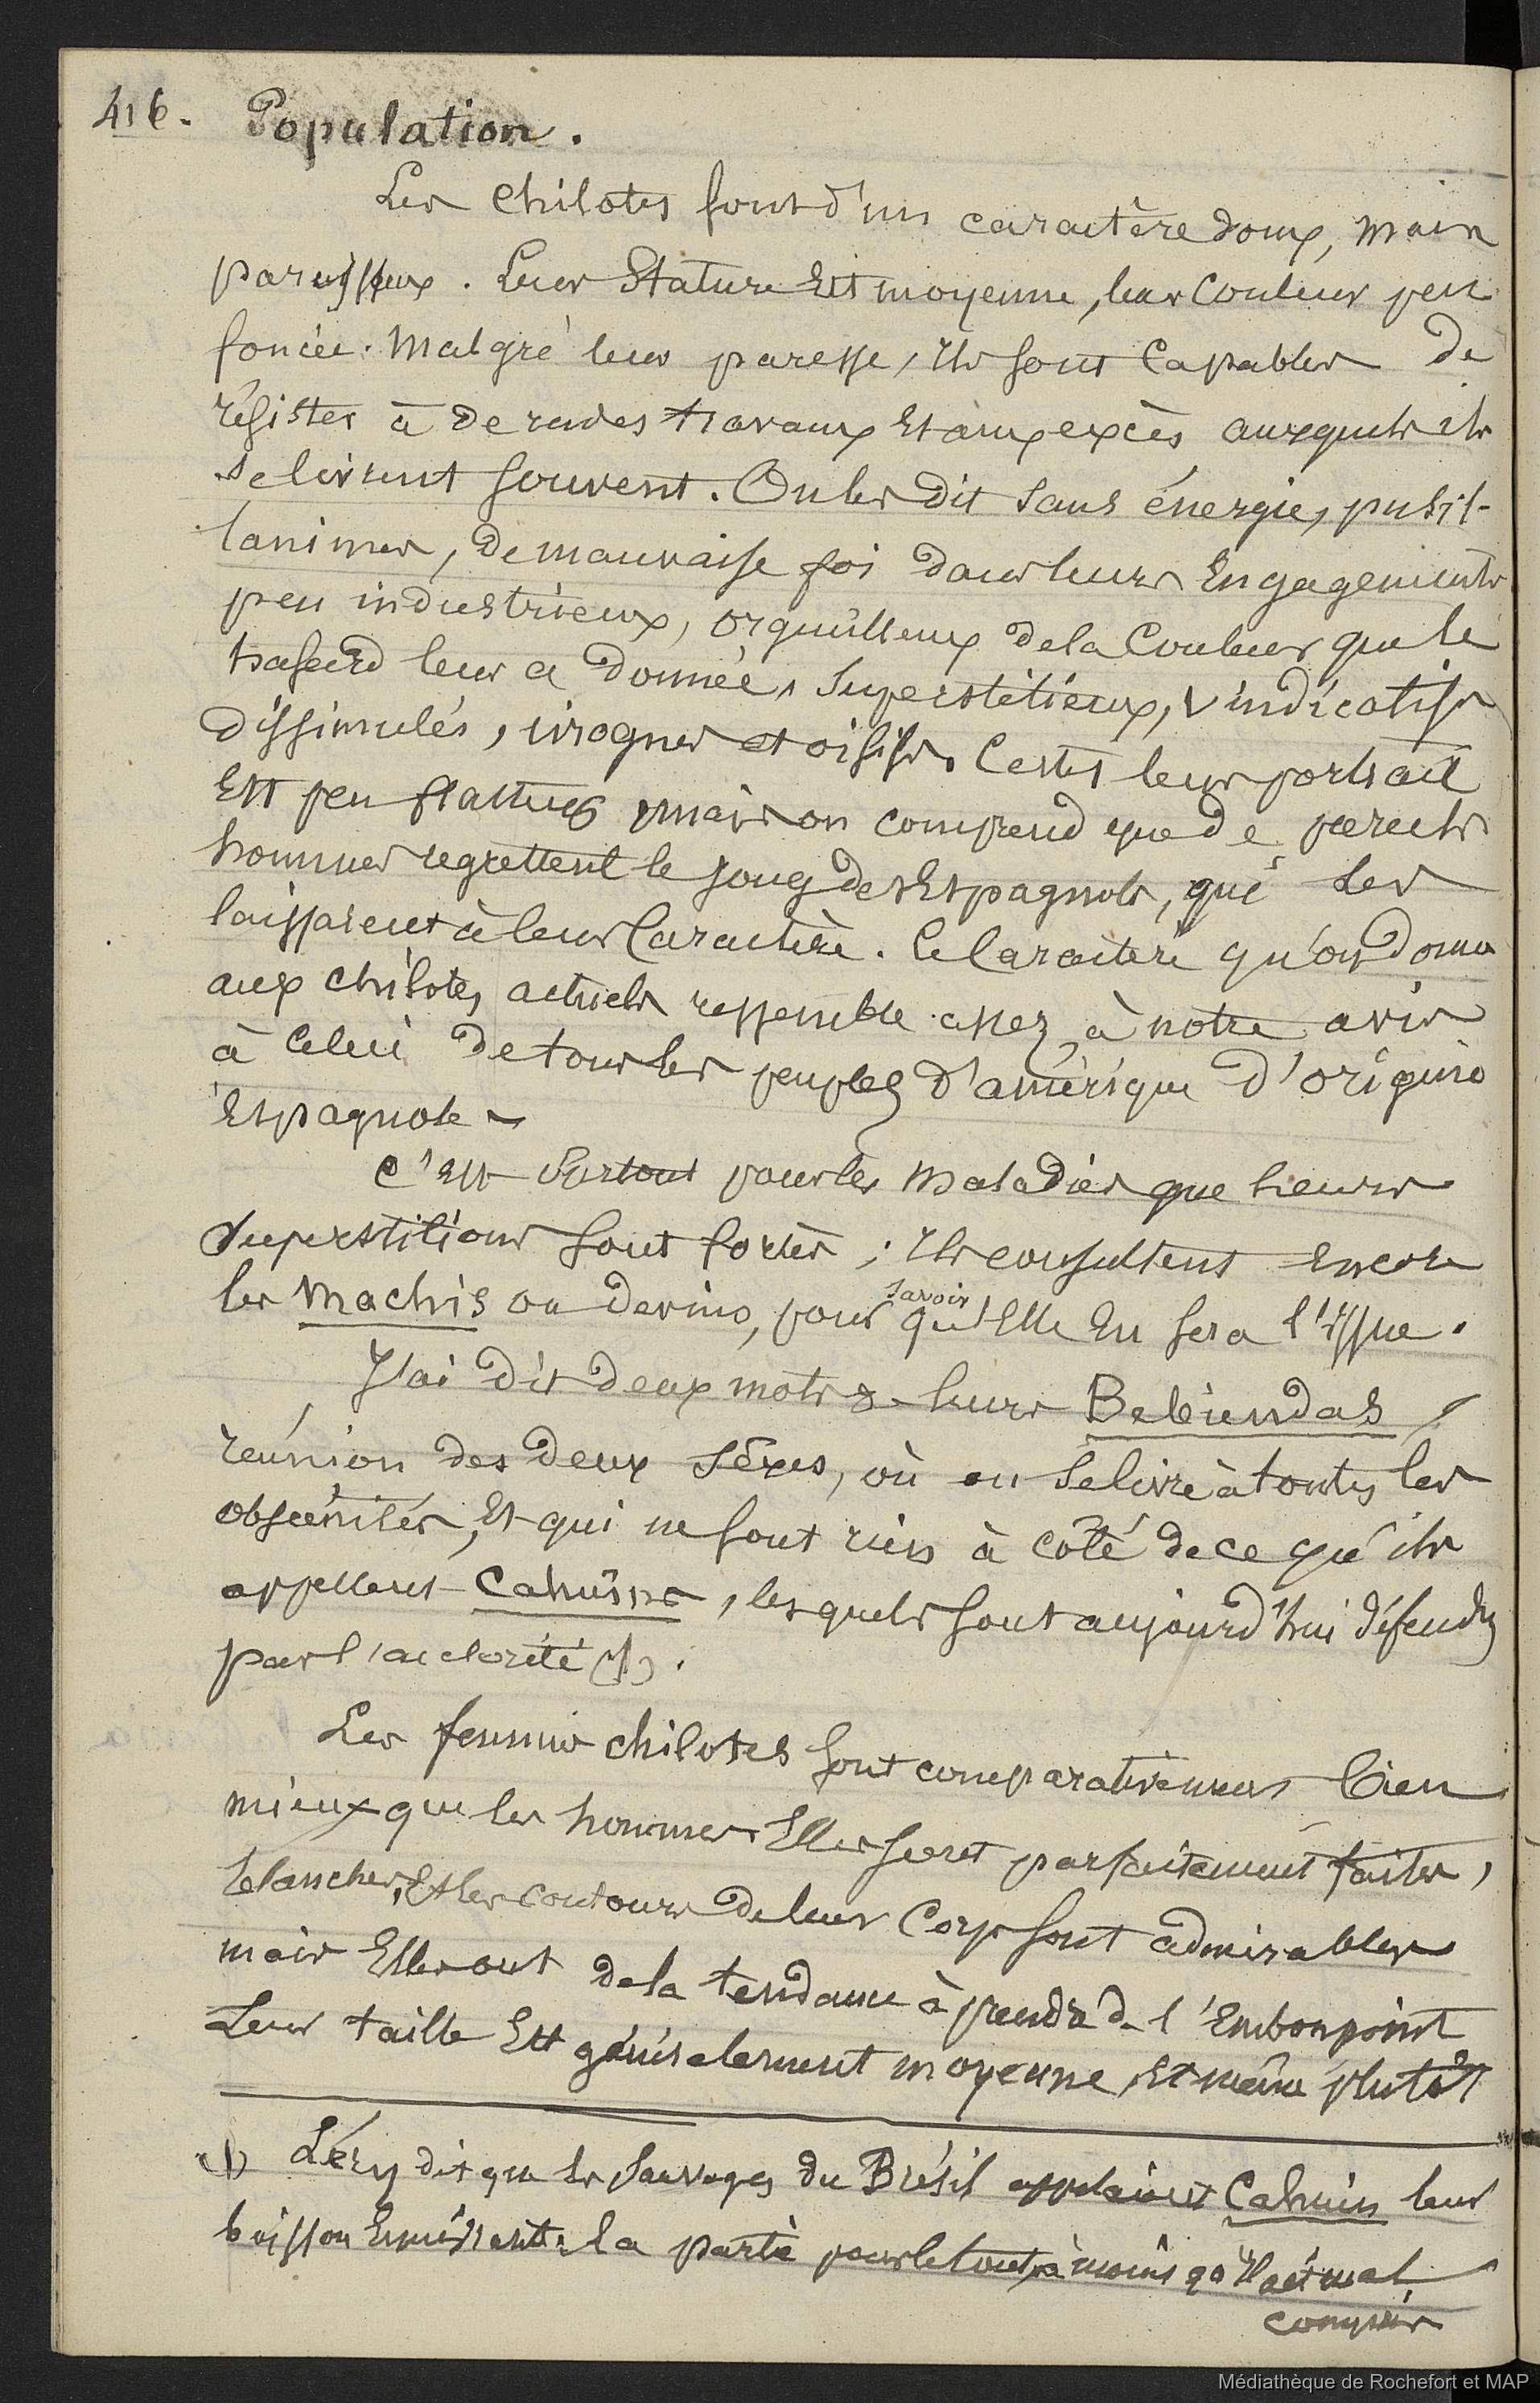 416. Population.
Les Chilotes sont d'un caractère doux, mais
paresseux. Leur Stature Est moyenne, leur Couleur peu
foncée. Malgré leur paresse, Ils sont Capables de
résister à de rudes travaux Et aux excès auxquels ils
se livrent souvent. On les dit sans énergie, pusil-
lanimes, de mauvaise foi dans leurs Engagements
peu industrieux, orgueilleux de la Couleur que le
hasard leur a donnée, Superstitieux, vindicatifs
dissimulés, ivrognes et oisifs. Certes leur portrait
Est peu flatteur mais on comprend que de pareils
hommes regrettent le joug des Espagnols, qui les
laissaient à leur Caractère. Le Caractère qu'on donne
aux Chilotes actuels ressemble assez, à notre avis
à Celui de tous les peuples d'amérique d'origine
Espagnole
C'est Surtout pour les Maladies que leurs
Superstitions sont fortes ; Ils consultent Encore
les Machis ou devins, pour savoir qu'Elle En sera l'Issue.
J'ai dit deux mots de leurs Bebiendas,
réunion des deux sèxes, où on se livre à toutes les
obscénités, Et qui ne sont rien à côté de ce qu'ils
appellent Cahuins, lesquels sont aujourd'hui défendus
par l'autorité (1).
Les femmes chilotes sont comparativement bien
mieux que les hommes. Elles sont parfaitement faites,
blanches, Et les contours de leur Corps sont admirables
mais Elles ont de la tendance à prendre de l'Embonpoint
Leur taille Est généralement moyenne, Et même plutôt
(1) Léry dit que les Sauvages du Brésil appelaient Cahuin leur
boisson Enivrante la partie pour le tout, à moins qu'Il ait mal
compris
Médiathèque de Rochefort et MAP